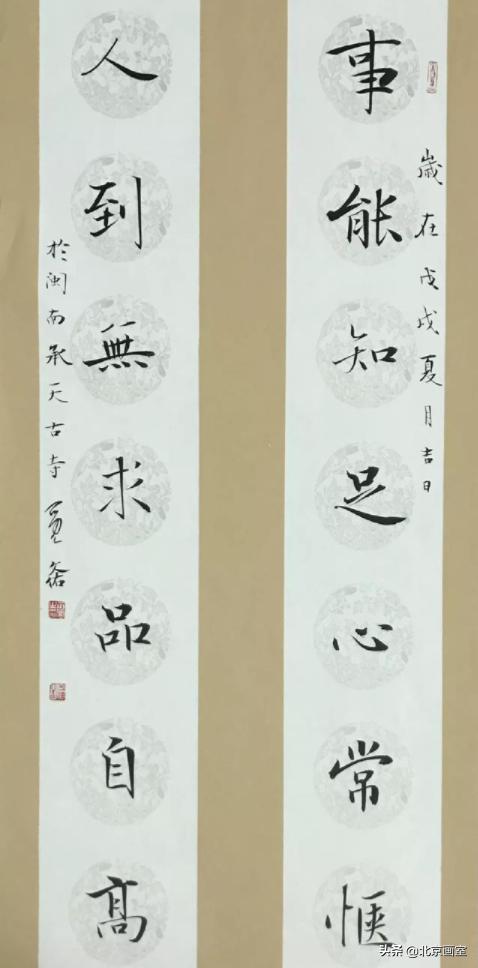 歲在戊戌夏月吉日
事能知足心常愜
人到無求品自高
於闽南承天古寺
头条 @北京画室